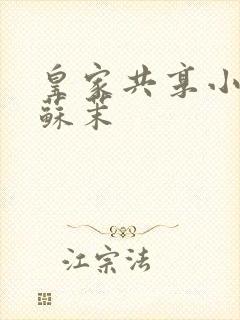 皇家共享小
蘇茉
江宗法